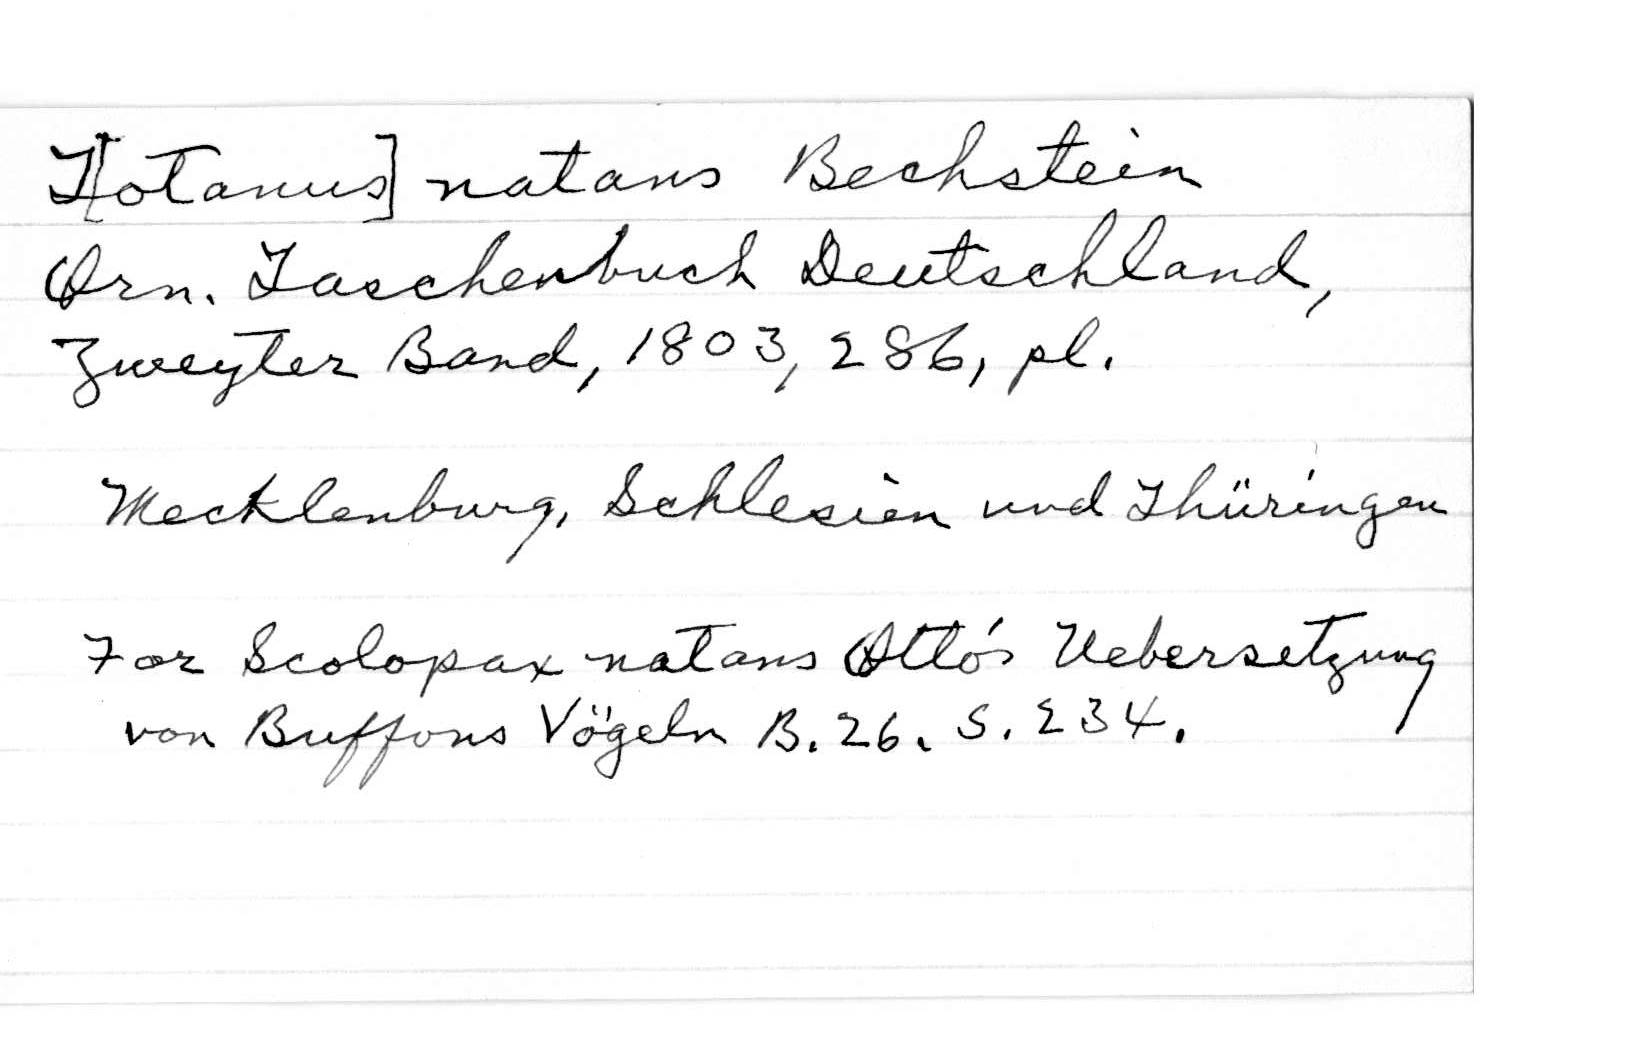 T[otanus] natans Bechstein
Orn. Taschenbuch Deutschland,
Zweyter Band, 1803, 286, pl.
Mecklenburg, Schlesien und Thüringen
For Scolopax natans Otto's Uebersetzung
von Buffons Vögeln B. 26. S. 234.